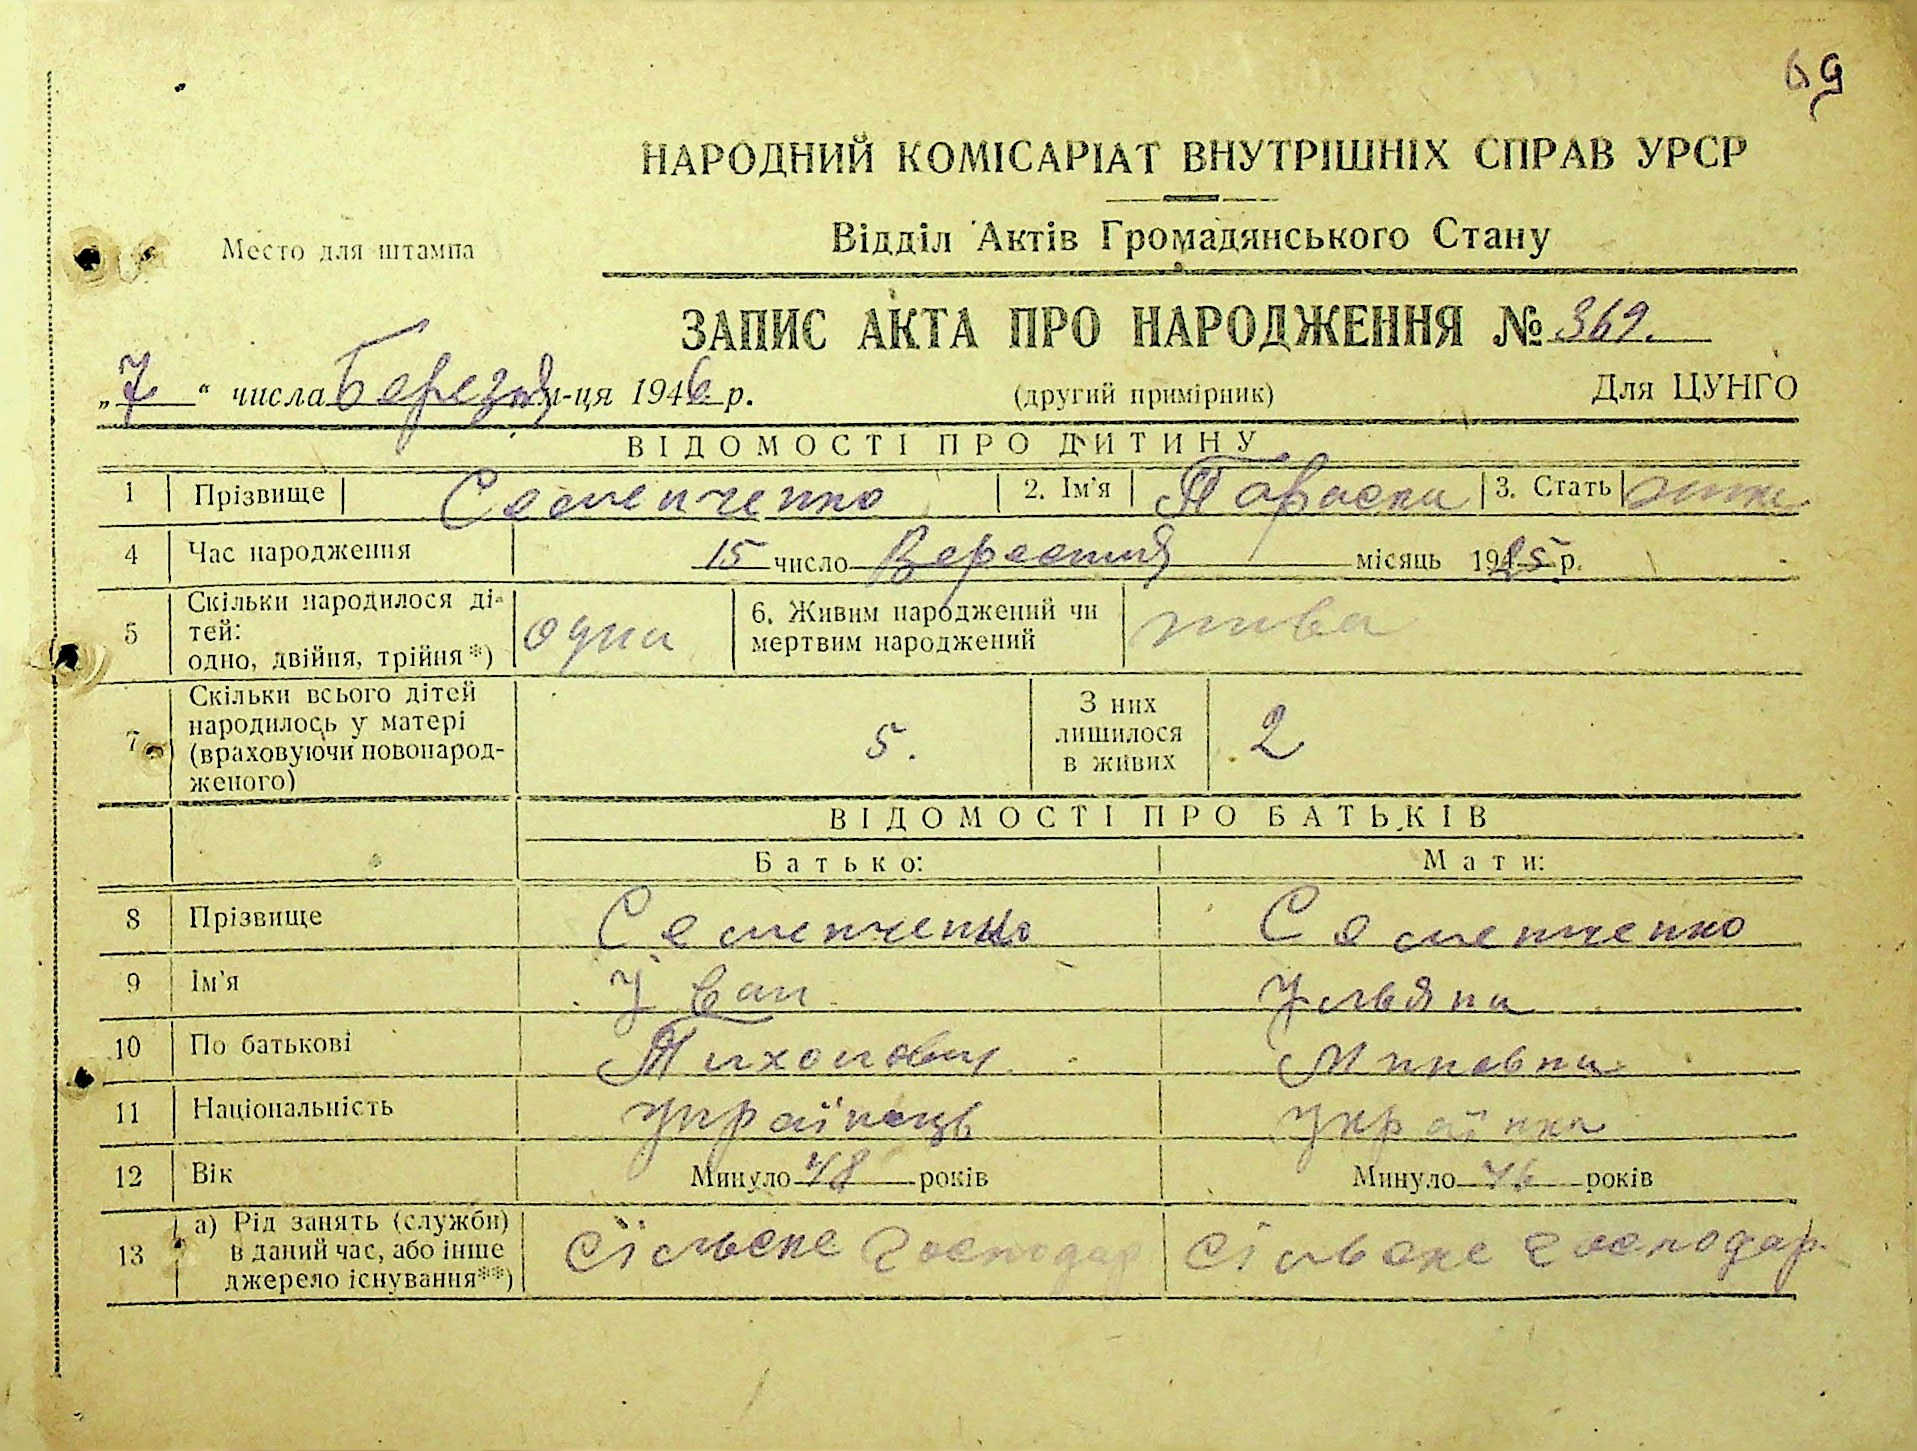 69
НАРОДНИЙ КОМІСАРІАТ ВНУТРІШНІХ СПРАВ УРСР
Відділ Актів Громадянського Стану
Место для штампа
ЗАПИС АКТА ПРО НАРОДЖЕННЯ № 369.
„7“ числа Березня м-ця 1946 р. (другий примірник) Для ЦУНГО
ВІДОМОСТІ ПРО ДИТИНУ
1 Прізвище Семенченко 2. Ім'я Параска 3. Стать жінк
4 Час народження 15 число Вересня місяць 1925 р.
5 Скільки народилося ді-
тей:
одно, двійня, трійня*) одна 6. Живим народжений чи
мертвим народжений жива
7 Скільки всього дітей
народилось у матері
(враховуючи новонарод-
женого) 5. З них
лишилося
в живих 2
ВІДОМОСТІ ПРО БАТЬКІВ
Батько: Мати:
8 Прізвище Семенченко Семенченко
9 Ім'я Іван Ульяна
10 По батькові Тихонович Миновна
11 Національність українець українка
12 Вік Минуло 48 років Минуло 46 років
13 а) Рід занять (служби)
в даний час, або інше
джерело існування**) Сільське господар Сільське господар.